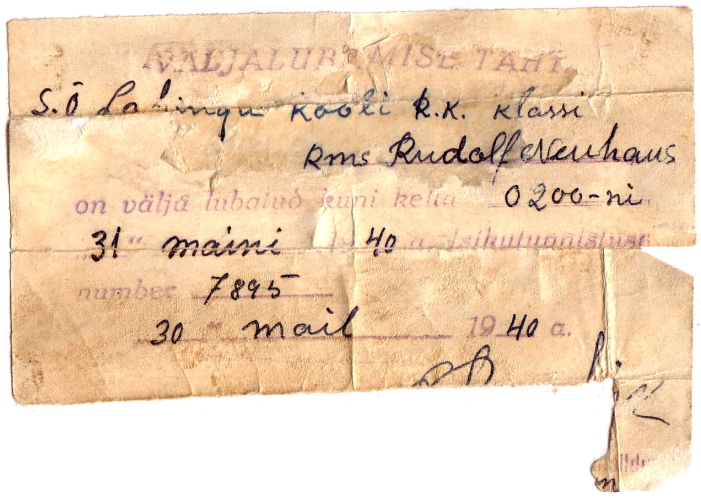 VÄLJALUBAMISE TÄHT
S.Õ Lahingu Kooli R.K. klassi
Rms Rudolf Neuhaus
on väljä lubatud kuni kella 0200-ni
31 " maini 1940 a. Isikutunnistuse
number 7895
30 " mail 1940 a.